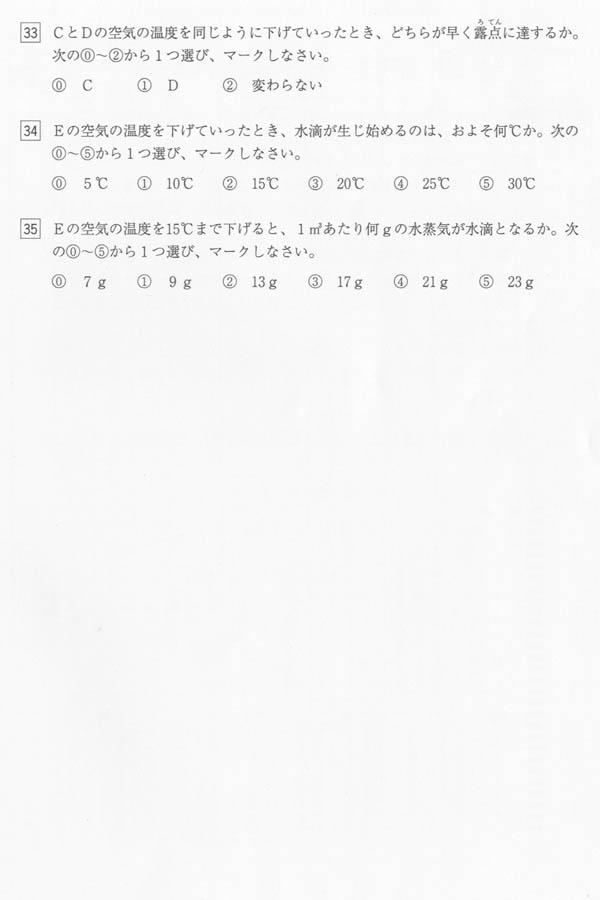 33 CとDの空気の温度を同じように下げていったとき、どちらが早く露点に達するか。
ろてん
次の⓪～②から1つ選び、マークしなさい。
⓪ C ① D ② 変わらない
34 Eの空気の温度を下げていったとき、水滴が生じ始めるのは、およそ何℃か。次の
⓪～⑤から1つ選び、マークしなさい。
⓪ 5℃ ① 10℃ ② 15℃ ③ 20℃ ④ 25℃ ⑤ 30℃
35 Eの空気の温度を15℃まで下げると、1㎥あたり何gの水蒸気が水滴となるか。次
の⓪～⑤から1つ選び、マークしなさい。
⓪ 7g ① 9g ② 13g ③ 17g ④ 21g ⑤ 23g